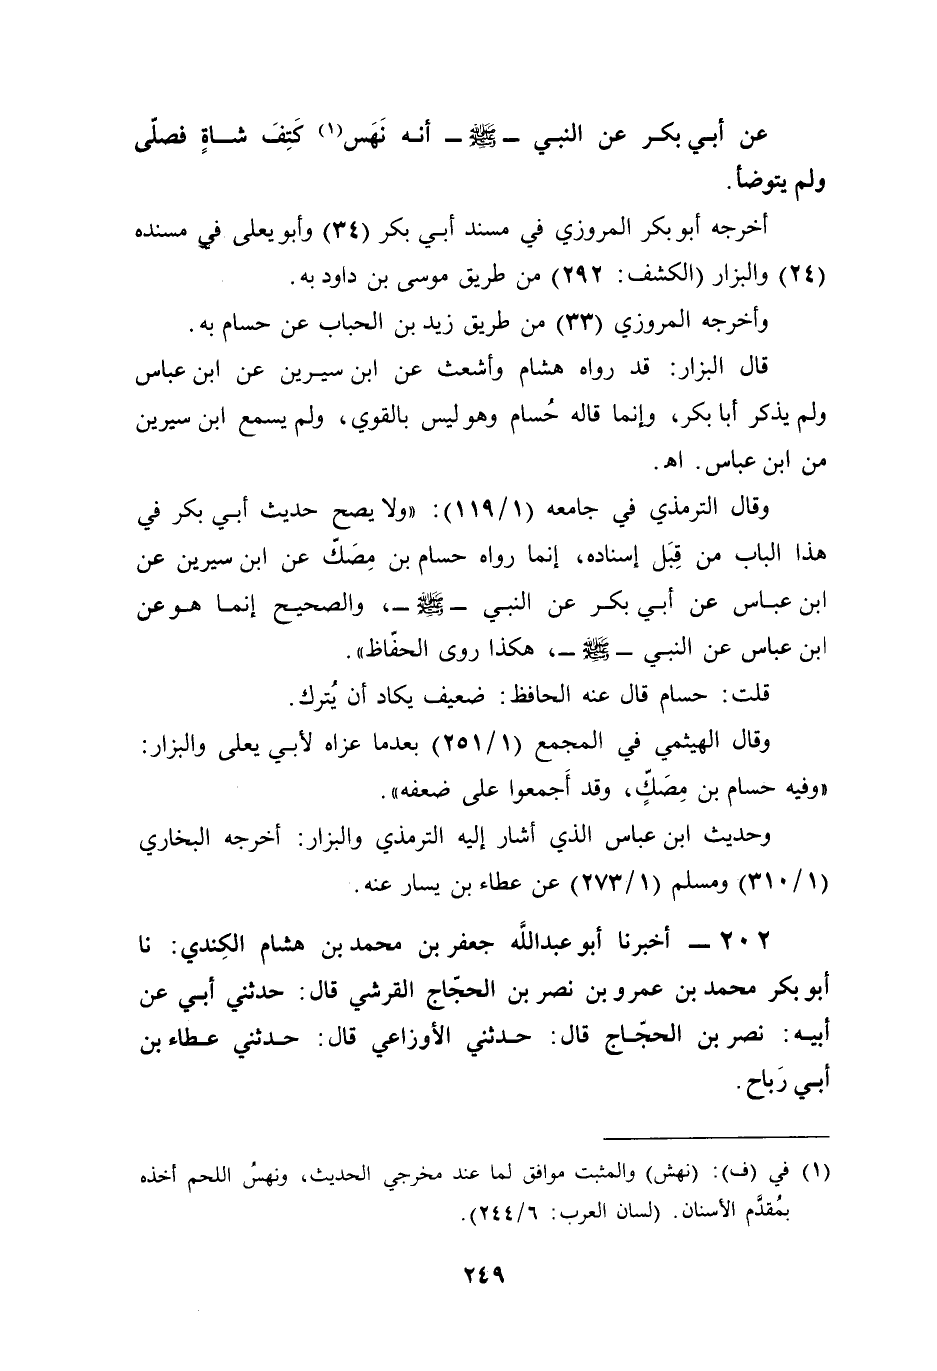 عن أبي بكر عن النبي ـ ﷺ ـ أنه نَهَس(١) كَتِفَ شاةٍ فصلّى
ولم يتوضأ.
أخرجه أبو بكر المروزي في مسند أبي بكر (٣٤) وأبو يعلى في مسنده
(٢٤) والبزار (الكشف: ٢٩٢) من طريق موسى بن داود به.
وأخرجه المروزي (٣٣) من طريق زيد بن الحباب عن حسام به.
قال البزار: قد رواه هشام وأشعث عن ابن سيرين عن ابن عباس
ولم يذكر أبا بكر، وإنما قاله حُسام وهو ليس بالقوي، ولم يسمع ابن سيرين
من ابن عباس. اهـ.
وقال الترمذي في جامعه (١/١١٩): «ولا يصح حديث أبي بكر في
هذا الباب من قِبَل إسناده، إنما رواه حسام بن مِصَكّ عن ابن سيرين عن
ابن عباس عن أبي بكر عن النبي ـ ﷺ ـ، والصحيح إنما هو عن
ابن عباس عن النبي ـ ﷺ ـ، هكذا روى الحفّاظ».
قلت: حسام قال عنه الحافظ: ضعيف يكاد أن يُترك.
وقال الهيثمي في المجمع (١/٢٥١) بعدما عزاه لأبي يعلى والبزار:
«وفيه حسام بن مِصَكٍّ، وقد أَجمعوا على ضعفه».
وحديث ابن عباس الذي أشار إليه الترمذي والبزار: أخرجه البخاري
(١/٣١٠) ومسلم (١/٢٧٣) عن عطاء بن يسار عنه.
٢٠٢ ـ أخبرنا أبو عبدالله جعفر بن محمد بن هشام الكِندي: نا
أبو بكر محمد بن عمرو بن نصر بن الحجّاج القرشي قال: حدثني أبي عن
أبيه: نصر بن الحجّاج قال: حدثني الأوزاعي قال: حدثني عطاء بن
أبي رَباح.
(١) في (ف): (نهش) والمثبت موافق لما عند مخرجي الحديث، ونهسُ اللحم أخذه
بمُقدَّم الأسنان. (لسان العرب: ٦/٢٤٤).
٢٤٩